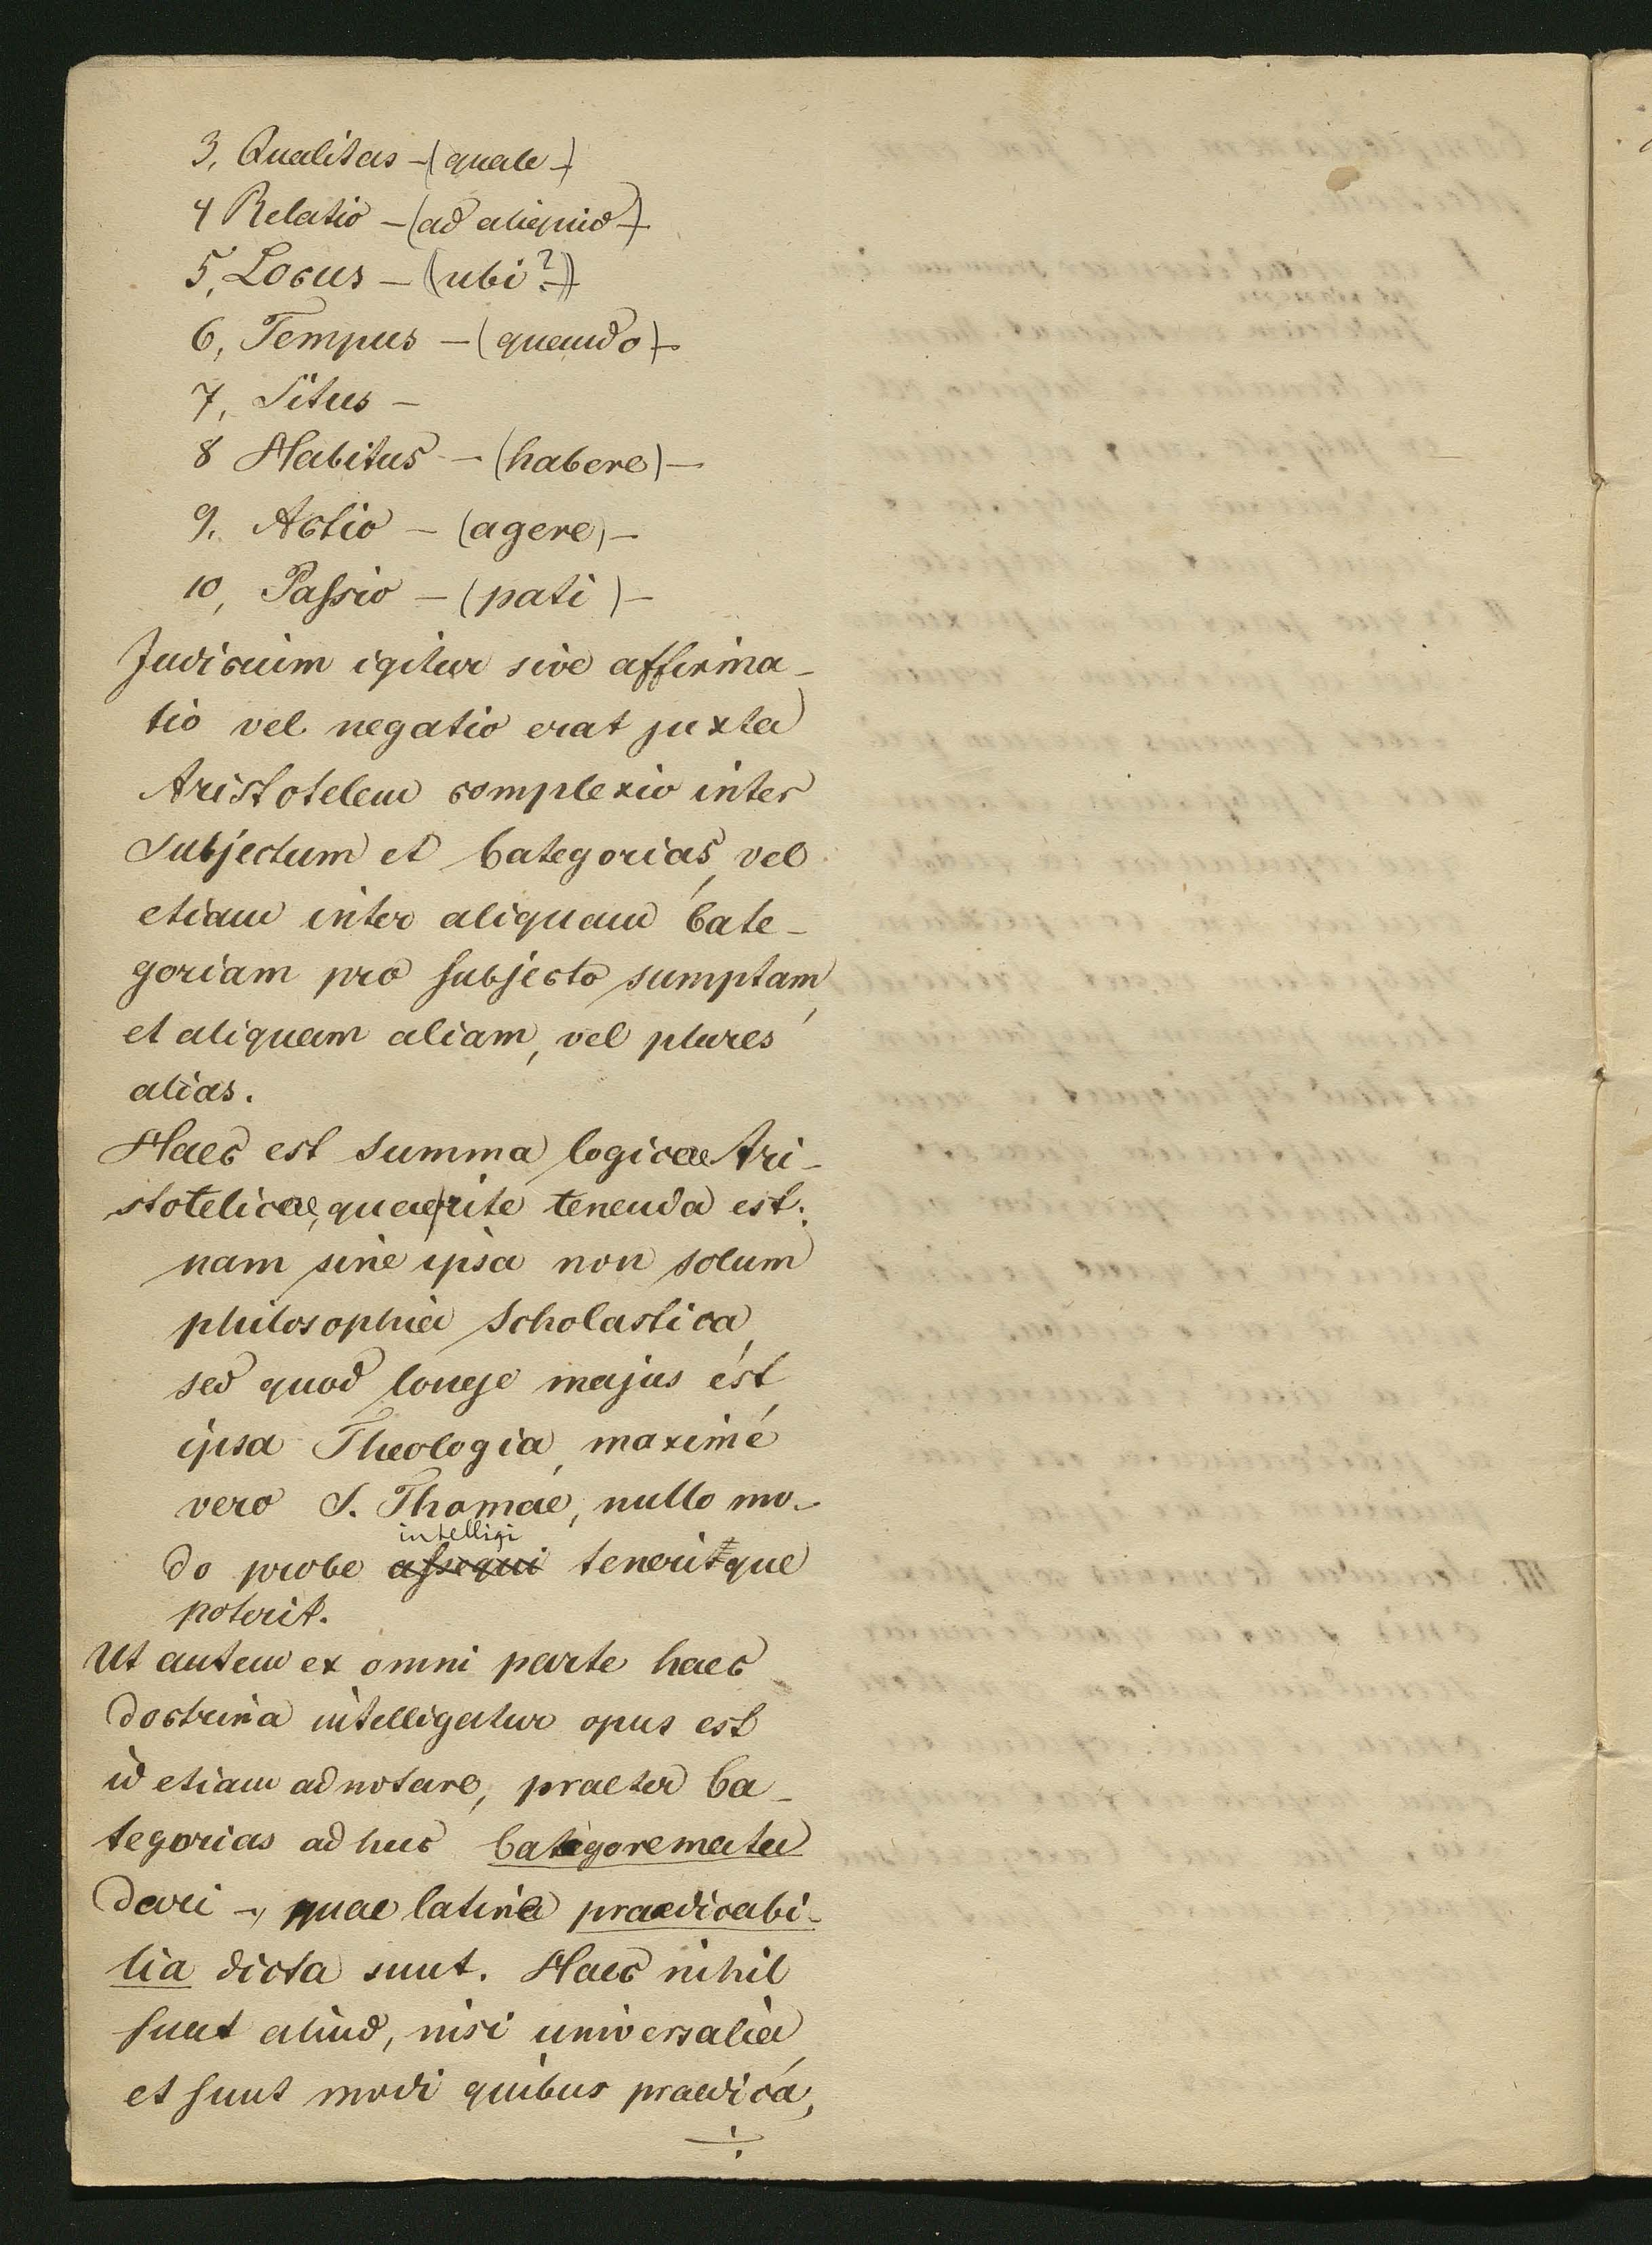 3, Qualitas - (quale -)
4 Relatio - (ad aliquid -)
5, Locus - (ubi? -)
6, Tempus - (quando) -
7, Situs -
8 Habitus - (habere) -
9. Actio - (agere) -
10, Passio - (pati) -
Judicium igitur sive affirma-
tio vel negatio erat juxta
Aristotelem complexio inter
subjectum et Categorias, vel
etiam inter aliquam Cate-
goriam pro subjecto sumptam,
et aliquam aliam, vel plures
alias.
Haec est summa logicae Ari-
stotelicae, quae rite tenenda est;
nam sine ipsa non solum
philosophia scholastica,
sed quod longe majus est,
ipsa Theologia, maxime
vero S. Thomae, nullo mo-
intelligi
do probe assequi teneritque
poterit.
Ut autem ex omni parte haec
doctrina intelligatur opus est
id etiam adnotare, praeter Ca-
tegorias adhuc Categoremata
dari -, quae latine praedicabi-
lia dicta sunt. Haec nihil
sunt aliud, nisi universalia,
et sunt modi quibus praedica,